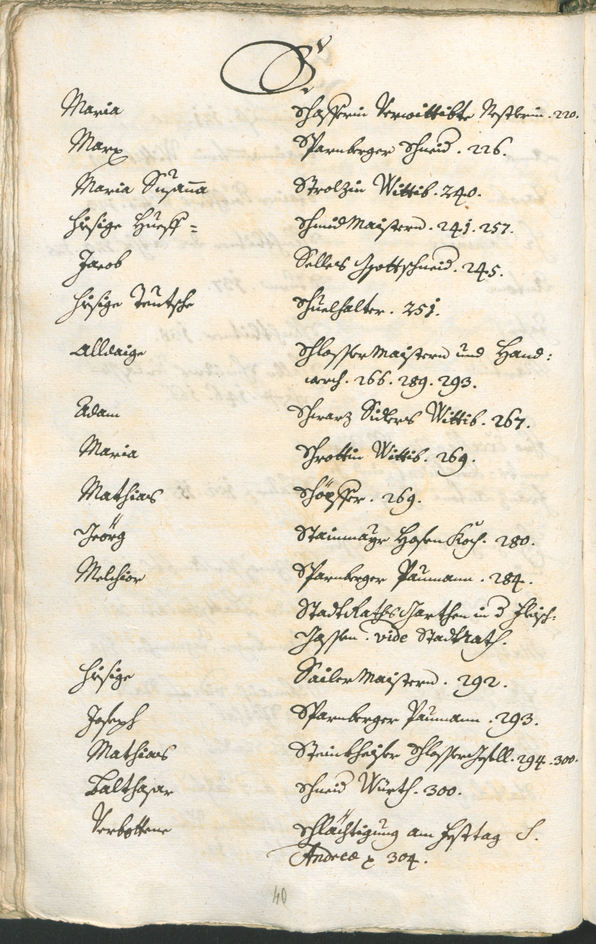 S
Maria Schafferin Verwittibte Nestlerin. 220.
Marx Sparnberger Schneid. 226.
Maria Susanna Strolzin Wittib. 240.
Hiesige Hueff= Schmid Maistern. 241. 257.
Jacob Selles Gottschneid. 245.
Hiesige Teutsche Schuelhalter. 251.
Alldaige Schlosser Maistern und Hand:
werch. 266. 289. 293.
Adam Schwarz Wittib. 267.
Maria Schrottin Wittib. 269.
Mathias Schöpffer. 269.
Jeörg Stainmayr Hofen Koch. 280.
Melchior Sparnberger Paumann. 284.
Stadt Raths Garthen in d Fleisch:
Gassen. vide Stadtrath.
Hiesige Sailer Maistern. 292.
Joseph Sparnberger Paumann. 293.
Mathias Schlosser Gesell. 294. 300.
Balthasar Schneid Würth. 300.
Verbottene Schlächtigung am Festtag S.
Andreæ 304.
40